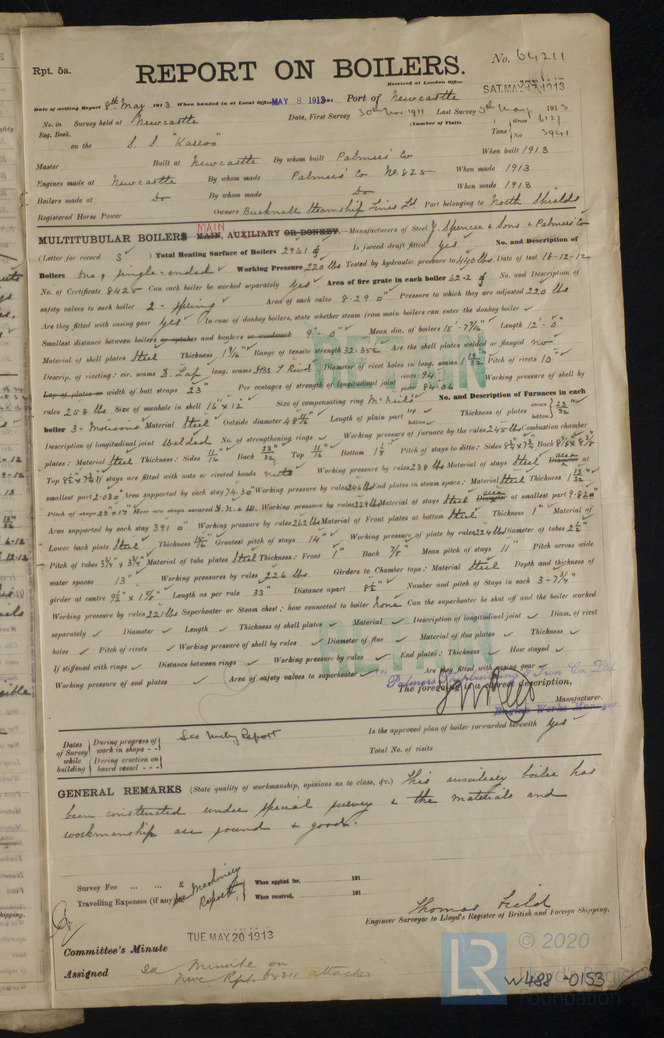 Rpt. 5a.
REPORT ON BOILERS.
No. 64211
Received at London Office
SAT. MAY 1913
Date of writing Report 8th May 1913 When handed in at Local Office MAY 8 1913 Port of Newcastle
No. in Reg. Book. Survey held at Newcastle Date, First Survey 30th Nov 1911 Last Survey 5th May 1913
(Number of Visits) Gross 6121
on the S. S. "Karroo" Tons Net 3941
Master Built at Newcastle By whom built Palmers' Co When built 1913
Engines made at Newcastle By whom made Palmers' Co No. 825 When made 1913
Boilers made at Do By whom made Do When made 1913
Registered Horse Power Owners Bucknall Steamship Lines Ld Port belonging to North Shields
MULTITUBULAR BOILERS MAIN, AUXILIARY OR DONKEY. Manufacturers of Steel J. Spencer & Sons & Palmers' Co
MAIN
(Letter for record S) Total Heating Surface of Boilers 2961 Is forced draft fitted Yes No. and Description of
Boilers One, Single-ended Working Pressure 220 lbs Tested by hydraulic pressure to 440 lbs Date of test 18-12-12
No. of Certificate 8425 Can each boiler be worked separately Yes Area of fire grate in each boiler 62.2 No. and Description of
safety valves to each boiler 2 - Spring Area of each valve 8.29 Pressure to which they are adjusted 220 lbs
Are they fitted with easing gear Yes In case of donkey boilers, state whether steam from main boilers can enter the donkey boiler
Smallest distance between boilers or uptakes and bunkers or woodwork 9'-0" Mean dia. of boilers 15'-7 Length 12'-0"
Material of shell plates Steel Thickness Range of tensile strength Are the shell plates welded or flanged No
Descrip. of riveting: cir. seams D. Lap long. seams Diameter of rivet holes in long. seams Pitch of rivets 10"
Lap of plates or width of butt straps 23" Per centages of strength of longitudinal joint rivets 94 plate 84.06 Working pressure of shell by
rules 258 lbs Size of manhole in shell 16" x 12" Size of compensating ring McNeils No. and Description of Furnaces in each
boiler 3 - Morisons Material Steel Outside diameter Length of plain part top bottom Thickness of plates crown bottom
Description of longitudinal joint Welded No. of strengthening rings Working pressure of furnace by the rules 245 lbs Combustion chamber
plates: Material Steel Thickness: Sides Back Top Bottom Pitch of stays to ditto: Sides Back
Top If stays are fitted with nuts or riveted heads nuts Working pressure by rules 238 lbs Material of stays Steel area at
smallest part 2.030 Area supported by each stay 74.30 Working pressure by rules 246 lbs End plates in steam space: Material Steel Thickness
Pitch of stays How are stays secured D.N.&W. Working pressure by rules 229 lbs Material of stays Steel area at smallest part 9.820
Area supported by each stay 391 Working pressure by rules 262 lbs Material of Front plates at bottom Steel Thickness 1" Material of
Lower back plate Steel Thickness Greatest pitch of stays 14" Working pressure of plate by rules 224 lbs Diameter of tubes 2½"
Pitch of tubes 3¾" x 3¾" Material of tube plates Steel Thickness: Front 1" Back 7/8" Mean pitch of stays 11" Pitch across wide
water spaces 13" Working pressures by rules 226 lbs Girders to Chamber tops: Material Steel Depth and thickness of
girder at centre Length as per rule 33" Distance apart Number and pitch of Stays in each 3-7¾"
Working pressure by rules 221 lbs Superheater or Steam chest; how connected to boiler None Can the superheater be shut off and the boiler worked
separately Diameter Length Thickness of shell plates Material Description of longitudinal joint Diam. of rivet
holes Pitch of rivets Working pressure of shell by rules Diameter of flue Material of flue plates Thickness
If stiffened with rings Distance between rings Working pressure by rules End plates: Thickness How stayed
Working pressure of end plates Area of safety valves to superheater Are they fitted with easing gear
RETAIN
RETAIN
Palmers Shipbuilding & Iron Co. Ltd.
The foregoing is a correct description,
Manufacturer.
Engine Works Manager.
Dates of Survey while building
During progress of work in shops - -
During erection on board vessel - - -
See Mchy Report
Is the approved plan of boiler forwarded herewith Yes
Total No. of visits
GENERAL REMARKS (State quality of workmanship, opinions as to class, &c.) This auxiliary boiler has
been constructed under special survey & the materials and
workmanship are sound & good.
Survey Fee ... ... £ When applied for, 191
Travelling Expenses (if any) £ When received, 191
See Machinery Report
Thomas Field
Engineer Surveyor to Lloyd's Register of British and Foreign Shipping.
Committee's Minute TUE. MAY. 20 1913
Assigned See Minute on
Nwc Rpt. 64211 attached
LR © 2020
Lloyd's Register
Foundation
W488-0153